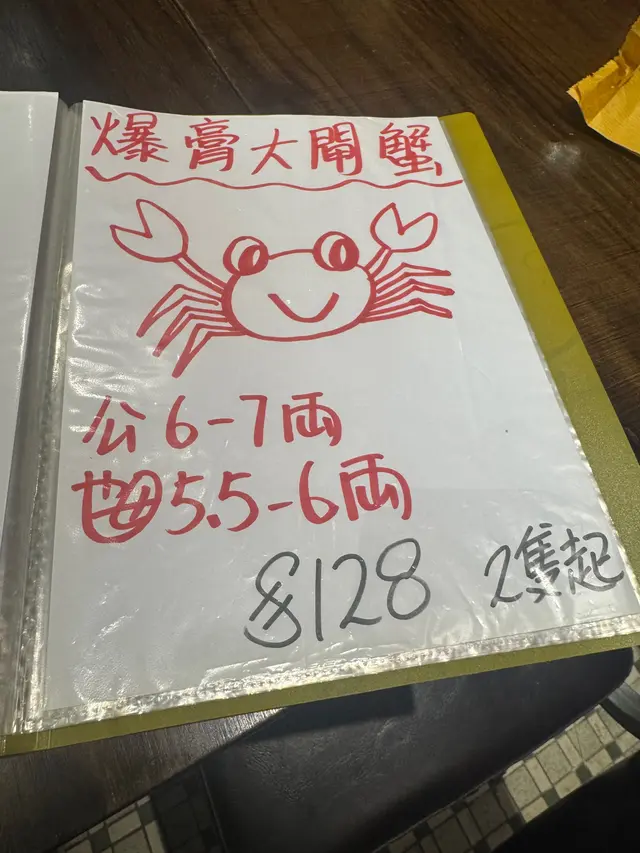 爆膏大閘蟹
公6-7両
乸5.5-6両
$128 2隻起